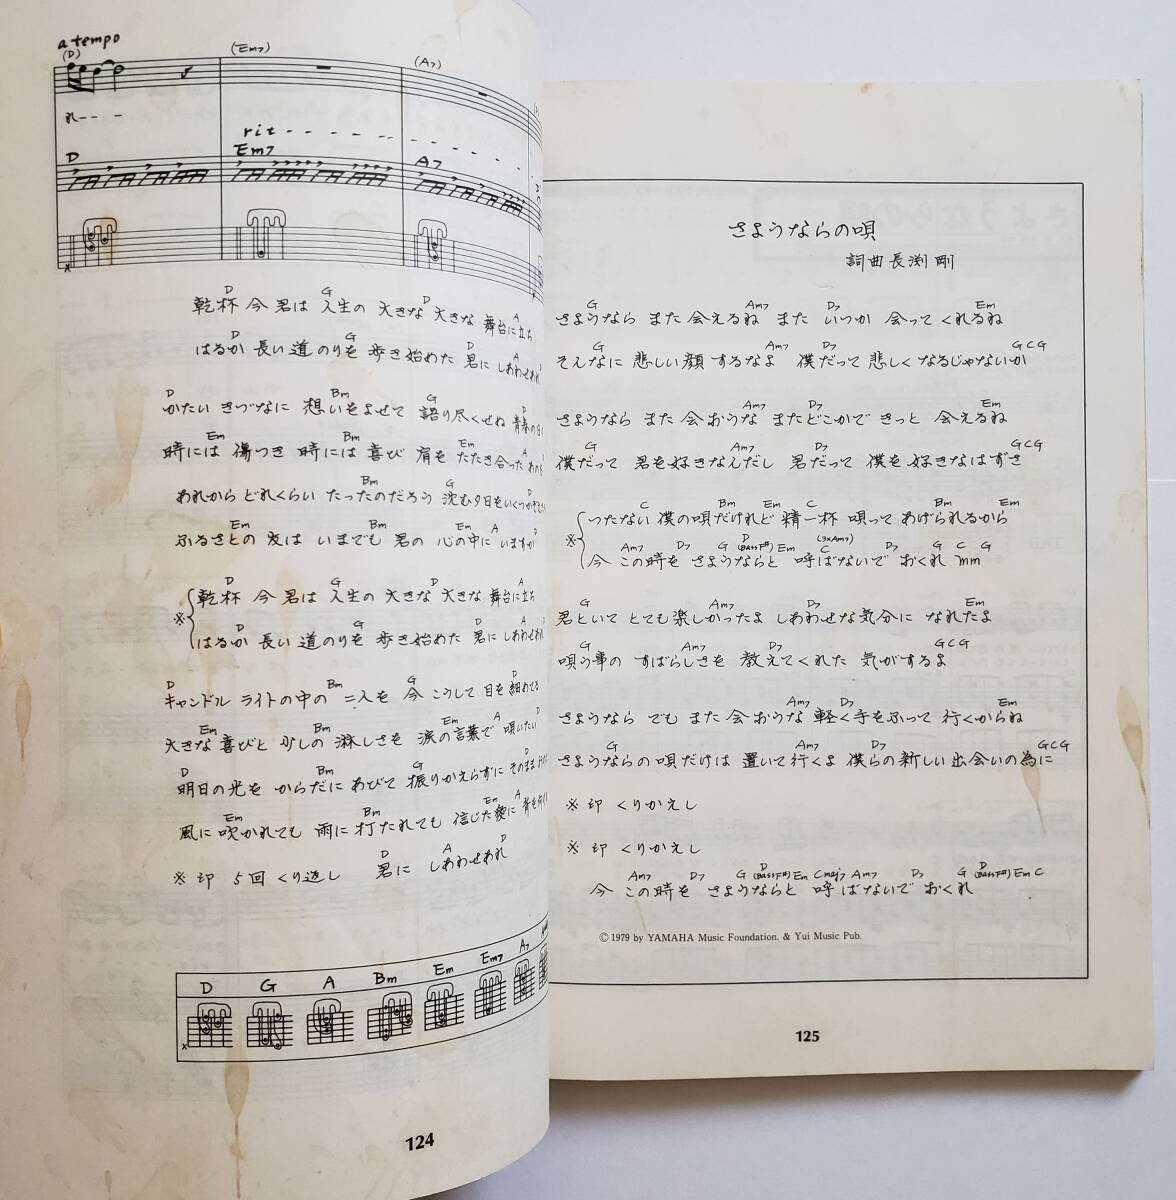 a tempo
(D) (Em7) (A7)
れ---
rit - - - -
D Em7 A7
D G D A
乾杯 今 君は 人生の 大きな 大きな 舞台に立ち
D G D A
はるか 長い 道のりを 歩き始めた 君に しあわせあれ
D Bm G D
かたい きづなに 想いをよせて 語り尽くせぬ 青春の
Em Bm Em A
時には 傷つき 時には 喜び 肩を たたき合った あの
Bm G
あれから どれくらい たったのだろう 沈む夕日を いくつ
Em Bm Em A D
ふるさとの 友は いまでも 君の 心の中に いますか
D G D A
※ 乾杯 今 君は 人生の 大きな 大きな 舞台に立ち
D G D A
はるか 長い 道のりを 歩き始めた 君に しあわせあれ
D Bm G D
キャンドル ライトの中の 二人を 今 こうして 目を 細めてる
Em Bm Em A D
大きな 喜びと 少しの 淋しさを 涙の言葉で 唄いたい
D Bm G
明日の光を からだに あびて 振りかえらずに そのまま
Em Bm Em A
風に 吹かれても 雨に 打たれても 信じた 愛に 背を
D A D
※ 印 5回 くり返し 君に しあわせあれ
D G A Bm Em Em7 A7
124
さようならの唄
詞曲 長渕 剛
G Am7 D7 Em
さようなら また 会えるね また いつか 会って くれるね
G Am7 D7 G C G
そんなに 悲しい 顔 するなよ 僕だって 悲しく なるじゃないか
Am7 D7
さようなら また 会おうな またどこかで きっと 会えるね
G Am7 D7 G C G
僕だって 君を好きなんだし 君だって 僕を 好きなはずさ
C Bm Em C Bm Em
※ つたない 僕の唄だけれど 精一杯 唄って あげられるから
Am7 D7 G D(Bass F#) Em C(3xAm7) D7 G C G
今 この時を さようならと 呼ばないで おくれ mm
G Am7 D7 Em
君といて とても楽しかったよ しあわせな気分に なれたよ
G Am7 D7 G C G
唄う事の すばらしさを 教えてくれた 気がするよ
Am7 D7 Em
さようなら でも また 会おうな 軽く 手をふって 行くからね
G Am7 D7 G C G
さようならの唄だけは 置いて 行くよ 僕らの 新しい 出会いの為に
※ 印 くりかえし
※ 印 くりかえし
Am7 D7 G D(Bass F#) Em Cmaj7 Am7 D7 G D(Bass F#) Em C
今 この時を さようならと 呼ばないで おくれ
© 1979 by YAMAHA Music Foundation. & Yui Music Pub.
125